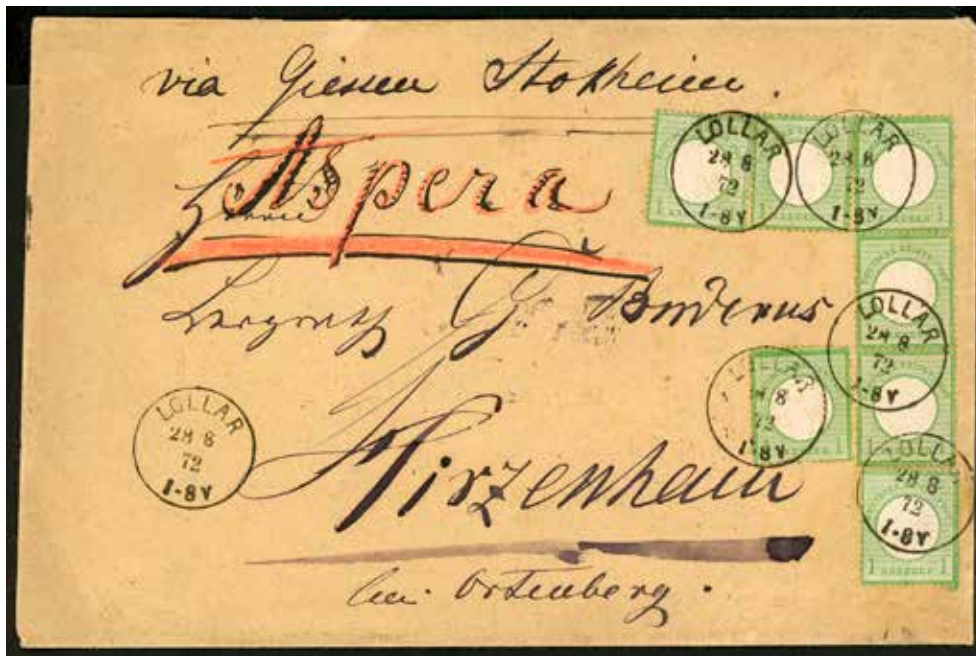 via Giessen Stokheim.
"Aspera"
Herrn
Bergrath G. Buderus
Hirzenhain
bei Ortenberg.
LOLLAR
28 8
72
1-8V
LOLLAR
28 8
72
1-8V
LOLLAR
28 8
72
1-8V
LOLLAR
28 8
72
1-8V
LOLLAR
28 8
72
1-8V
LOLLAR
28 8
72
1-8V
1
1
1
1 KREUZER 1
1
1 KREUZER 1